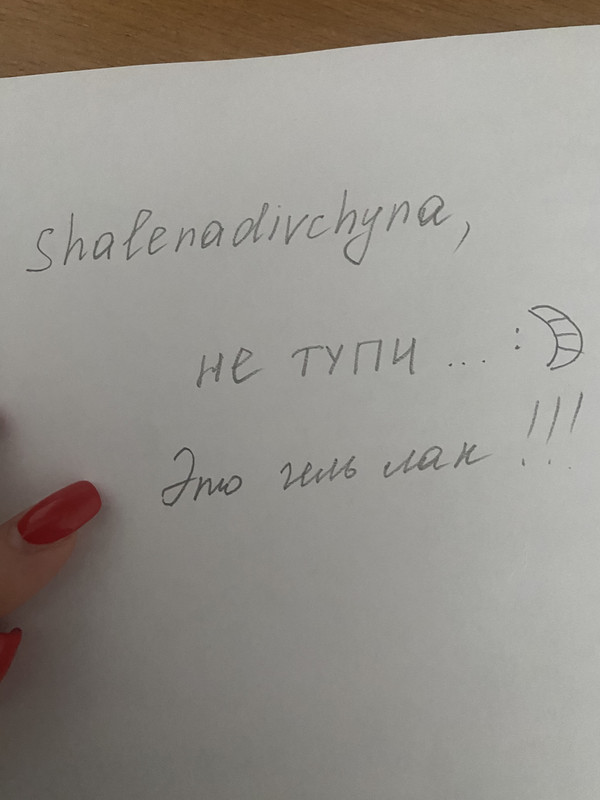 Shalenadivchyna,
не тупи ... :D
Это гель лак !!!